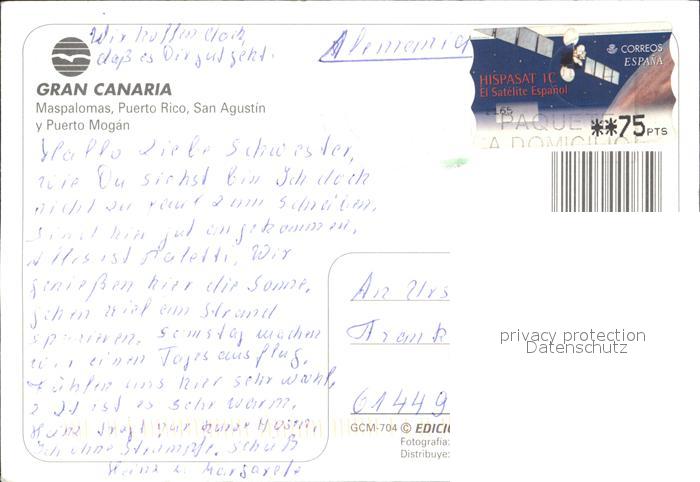 Wir hoffen doch,
daß es Dir gut geht.
Alemania
CORREOS
ESPAÑA
HISPASAT 1C
El Satélite Español
2165
PAQUETE
A DOMICILIO
**75 PTS
GRAN CANARIA
Maspalomas, Puerto Rico, San Agustín
y Puerto Mogán
Hallo Liebe Schwester,
wie Du siehst bin Ich doch
nicht zu faul zum Schreiben,
sind hier gut angekommen,
Alles ist Paletti, Wir
genießen hier die Sonne,
gehen viel am Strand
spazieren, Samstag machen
wir einen Tagesausflug,
Fühlen uns hier sehr wohl,
z Zt ist es sehr warm,
Heinz trägt nur kurze Hosen
Ich ohne Strümpfe.
Heinz u. Margarete
An Urs
Frank
61449
GCM-704 © EDICIO
Fotografía:
Distribuye:
privacy protection
Datenschutz